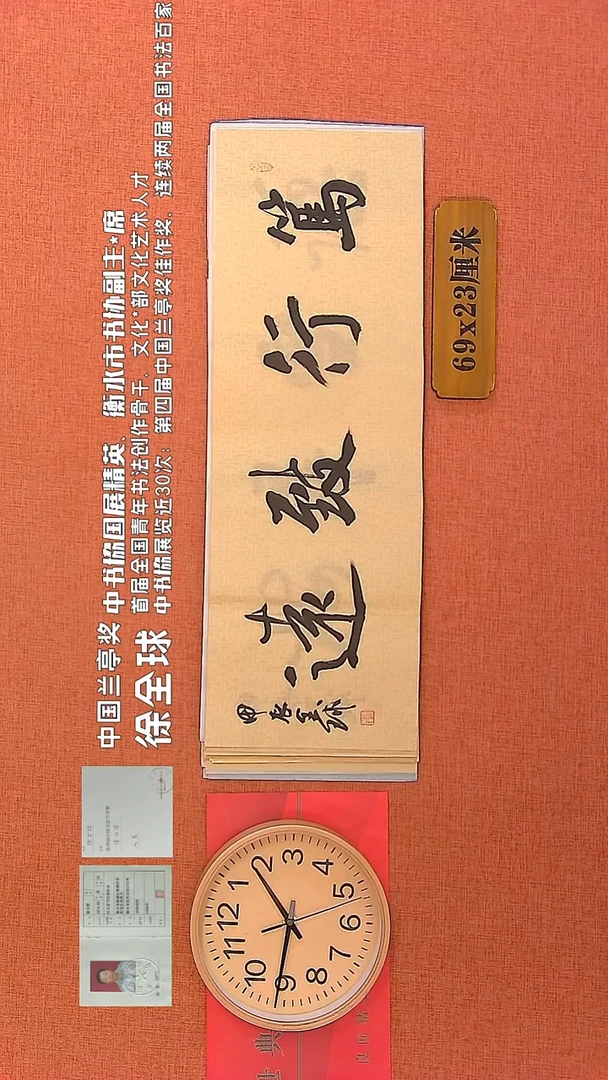 中国兰亭奖 中书協国展精英、衡水市书协副主*席
徐全球 首届全国青年书法创作骨干、文化*部文化艺术人才
中书協展览近30次；第四届中国兰亭奖佳作奖、连续两届全国书法百家
篤行致遠
甲辰全球
69x23厘米
12
1
2
3
4
5
6
7
8
9
10
11
典